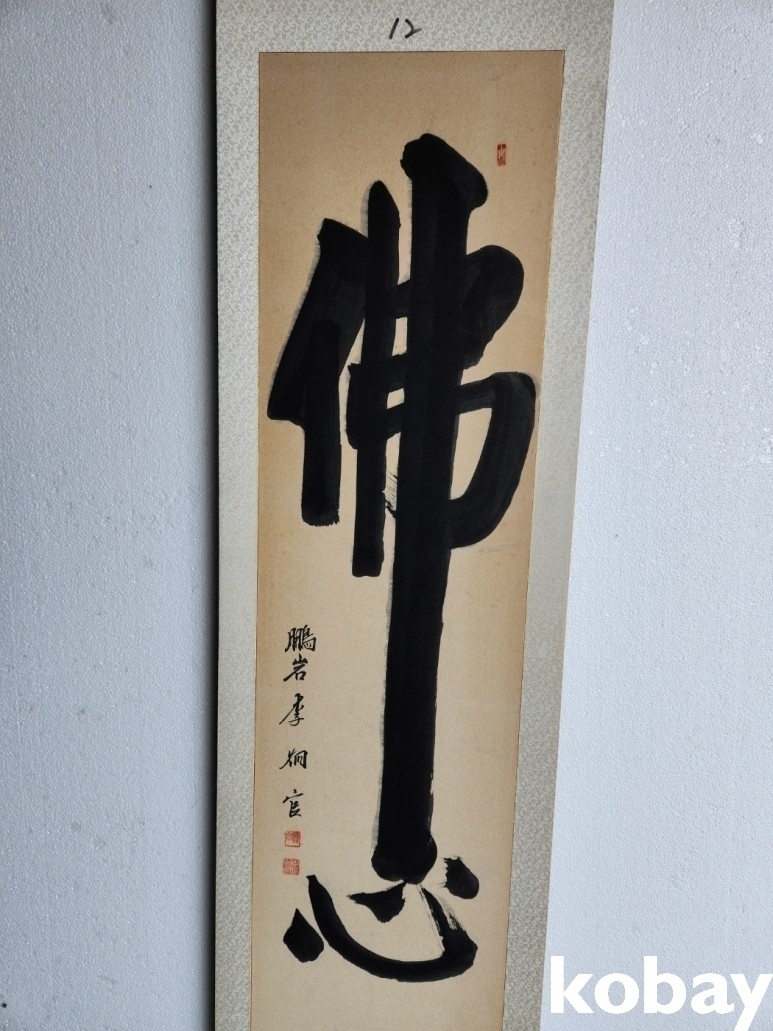 12
佛心
鵬岩 李炯宦
kobay